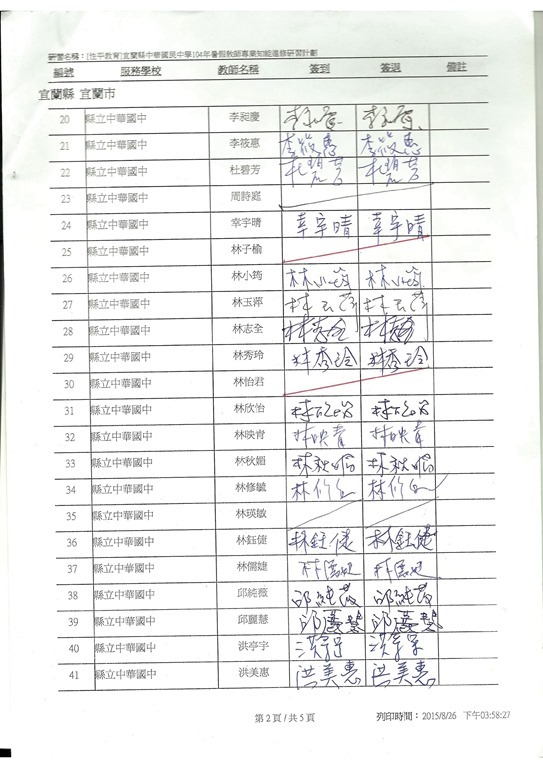 研習名稱：[性平教育]宜蘭縣中華國民中學104年暑假教師專業知能進修研習計劃
編號 服務學校 教師名稱 簽到 簽退 備註
宜蘭縣 宜蘭市
20 縣立中華國中 李昶慶
21 縣立中華國中 李筱惠 李筱惠 李筱惠
22 縣立中華國中 杜碧芳 杜碧芳 杜碧芳
23 縣立中華國中 周詩庭
24 縣立中華國中 幸宇晴 幸宇晴 幸宇晴
25 縣立中華國中 林子榆
26 縣立中華國中 林小筠 林小筠 林小筠
27 縣立中華國中 林玉萍 林玉萍 林玉萍
28 縣立中華國中 林志全 林志全 林志全
29 縣立中華國中 林秀玲 林秀玲 林秀玲
30 縣立中華國中 林怡君
31 縣立中華國中 林欣怡 林欣怡 林欣怡
32 縣立中華國中 林映青 林映青 林映青
33 縣立中華國中 林秋媚 林秋媚 林秋媚
34 縣立中華國中 林修毓
35 縣立中華國中 林瑛敏
36 縣立中華國中 林鈺倢 林鈺倢 林鈺倢
37 縣立中華國中
38 縣立中華國中 邱純薇 邱純薇 邱純薇
39 縣立中華國中 邱麗慧 邱麗慧 邱麗慧
40 縣立中華國中 洪亭宇
41 縣立中華國中 洪美惠 洪美惠 洪美惠
第 2 頁 / 共 5 頁 列印時間：2015/8/26 下午03:58:27